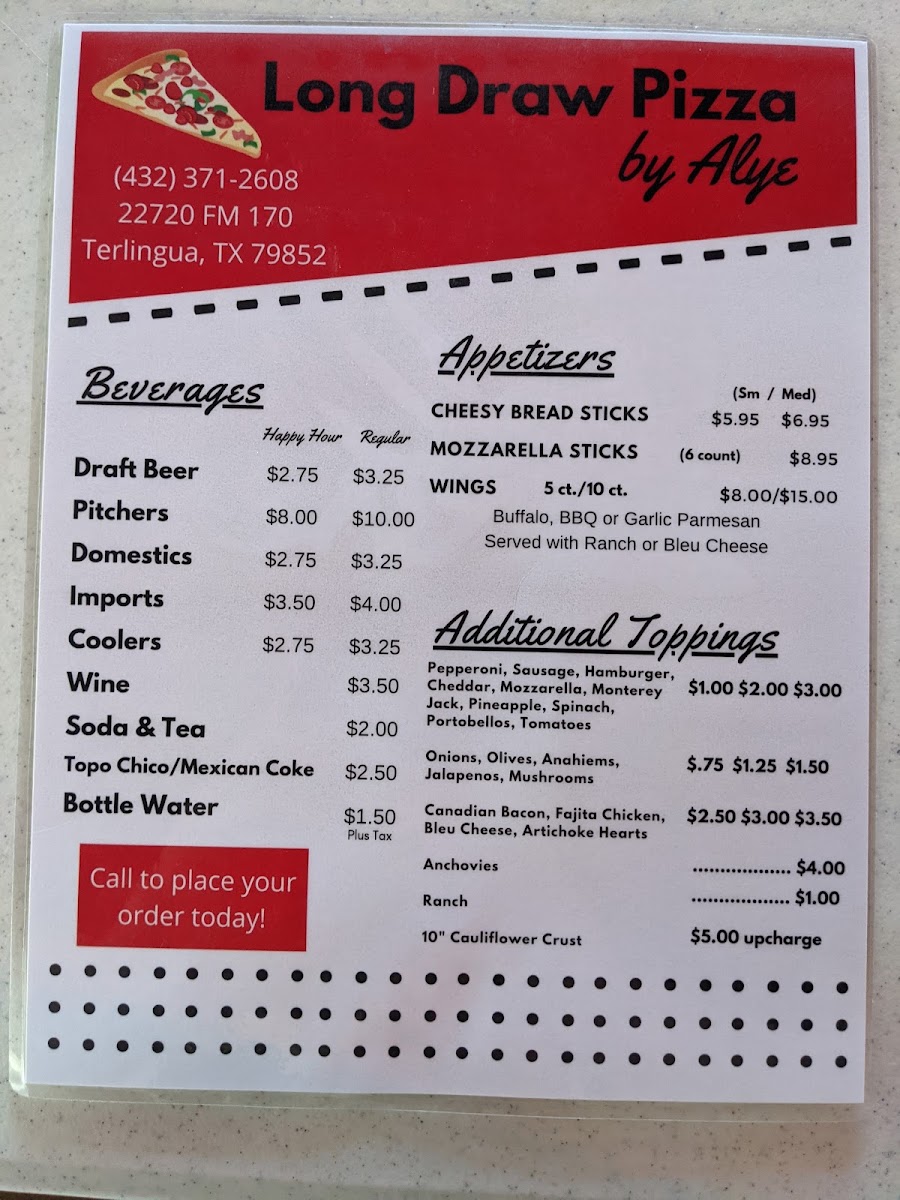 Long Draw Pizza
by Alye
(432) 371-2608
22720 FM 170
Terlingua, TX 79852
Beverages
Happy Hour Regular
Draft Beer $2.75 $3.25
Pitchers $8.00 $10.00
Domestics $2.75 $3.25
Imports $3.50 $4.00
Coolers $2.75 $3.25
Wine $3.50
Soda & Tea $2.00
Topo Chico/Mexican Coke $2.50
Bottle Water $1.50
Plus Tax
Call to place your
order today!
Appetizers
(Sm / Med)
CHEESY BREAD STICKS $5.95 $6.95
MOZZARELLA STICKS (6 count) $8.95
WINGS 5 ct./10 ct. $8.00/$15.00
Buffalo, BBQ or Garlic Parmesan
Served with Ranch or Bleu Cheese
Additional Toppings
Pepperoni, Sausage, Hamburger,
Cheddar, Mozzarella, Monterey $1.00 $2.00 $3.00
Jack, Pineapple, Spinach,
Portobellos, Tomatoes
Onions, Olives, Anahiems, $.75 $1.25 $1.50
Jalapenos, Mushrooms
Canadian Bacon, Fajita Chicken, $2.50 $3.00 $3.50
Bleu Cheese, Artichoke Hearts
Anchovies .................. $4.00
Ranch .................. $1.00
10" Cauliflower Crust $5.00 upcharge